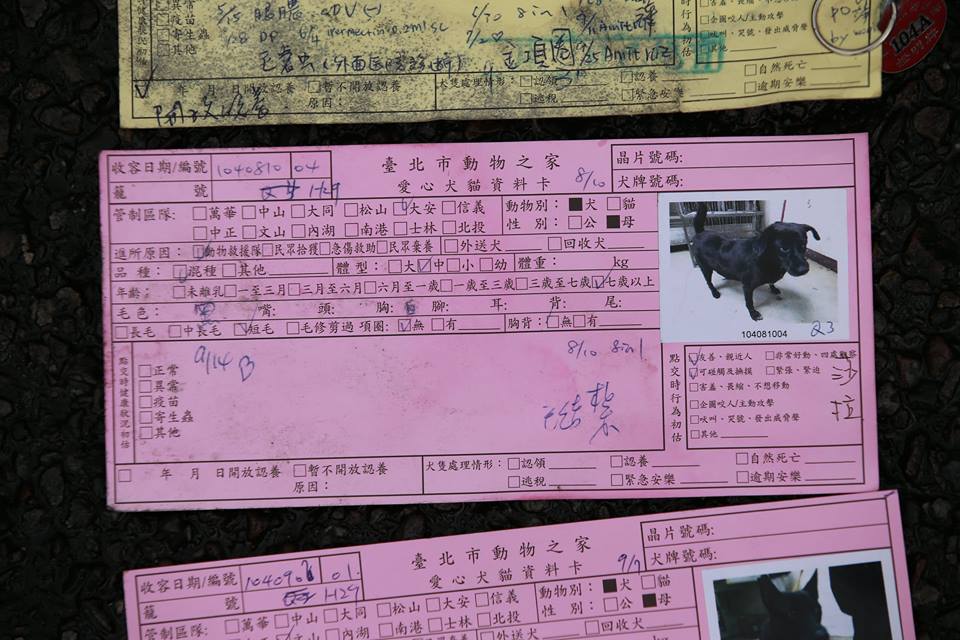 5/15
8in1
異常
疫苗
寄生蟲
其他
年 月 日開放認養 □暫不開放認養
原因：
犬隻處理情形：□認領 □認養 □自然死亡
□逃税 □緊急安樂 □逾期安樂
開放認養
□企圖咬人/主動攻擊
□吠叫、哭號、發出威脅聲
□其他
104A
收容日期/編號 1040810 04
籠 號 H29
臺北市動物之家
愛心犬貓資料卡
8/10
晶片號碼:
犬牌號碼:
管制區隊: □萬華 □中山 □大同 □松山 □大安 □信義
□中正 □文山 □內湖 □南港 □士林 □北投
動物別：■犬 □貓
性 別：□公 ■母
進所原因：□動物救援隊 □民眾拾獲 □急傷救助 □民眾棄養 □外送犬 □回收犬
品種：□混種 □其他 體型：□大 ☑中 □小 □幼 體重： kg
年齡：□未離乳 □一至三月 □三月至六月 □六月至一歲 □一歲至三歲 □三歲至七歲 ☑七歲以上
毛色： 黑 嘴： 頭： 胸：白 腳： 耳： 背： 尾：
□長毛 □中長毛 ☑短毛 □毛修剪過 項圈：☑無 □有 胸背：□無 □有
104081004
23
點交時健康狀況初估
9/14 B
8/10 8in1
□正常
□異常
□疫苗
□寄生蟲
□其他
結紮
點交時行為初估
☑友善、親近人 □非常好動、四處觀察
☑可碰觸及撫摸 □緊張、緊迫
□害羞、畏縮、不想移動
□企圖咬人/主動攻擊
□吠叫、哭號、發出威脅聲
□其他
沙拉
□ 年 月 日開放認養 □暫不開放認養
原因：
犬隻處理情形：□認領 □認養 □自然死亡
□逃税 □緊急安樂 □逾期安樂
收容日期/編號 01
籠 號 H29
臺北市動物之家
愛心犬貓資料卡
晶片號碼:
犬牌號碼:
管制區隊: □萬華 □中山 □大同 □松山 □大安 □信義
□文山 □內湖 □南港 □士林 □北投
動物別：■犬 □貓
性 別：□公 ■母
□外送犬 □回收犬